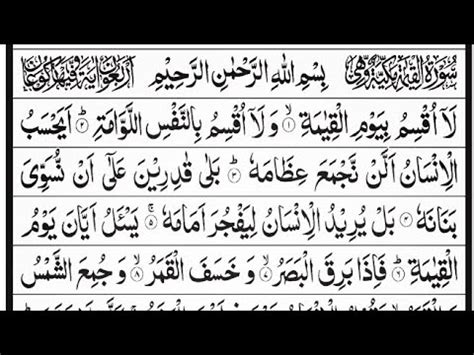 سُوْرَةُ الْقِيٰمَةِ مَكِّيَّةٌ وَّهِىَ بِسْمِ اللّٰهِ الرَّحْمٰنِ الرَّحِيْمِ اَرْبَعُوْنَ اٰيَةً وَّفِيْهَا رُكُوْعَانِ
لَاۤ اُقْسِمُ بِيَوْمِ الْقِيٰمَةِ ۙ‏﴿۱﴾ وَلَاۤ اُقْسِمُ بِالنَّفْسِ اللَّوَّامَةِ ؕ‏﴿۲﴾ اَيَحْسَبُ
الْاِنْسَانُ اَلَّنْ نَّجْمَعَ عِظَامَهٗ ؕ‏﴿۳﴾ بَلٰى قٰدِرِيْنَ عَلٰٓى اَنْ نُّسَوِّىَ
بَنَانَهٗ ‏﴿۴﴾ بَلْ يُرِيْدُ الْاِنْسَانُ لِيَفْجُرَ اَمَامَهٗ ۚ‏﴿۵﴾ يَسْئَلُ اَيَّانَ يَوْمُ
الْقِيٰمَةِ ؕ‏﴿۶﴾ فَاِذَا بَرِقَ الْبَصَرُ ۙ‏﴿۷﴾ وَ خَسَفَ الْقَمَرُ ۙ‏﴿۸﴾ وَ جُمِعَ الشَّمْسُ